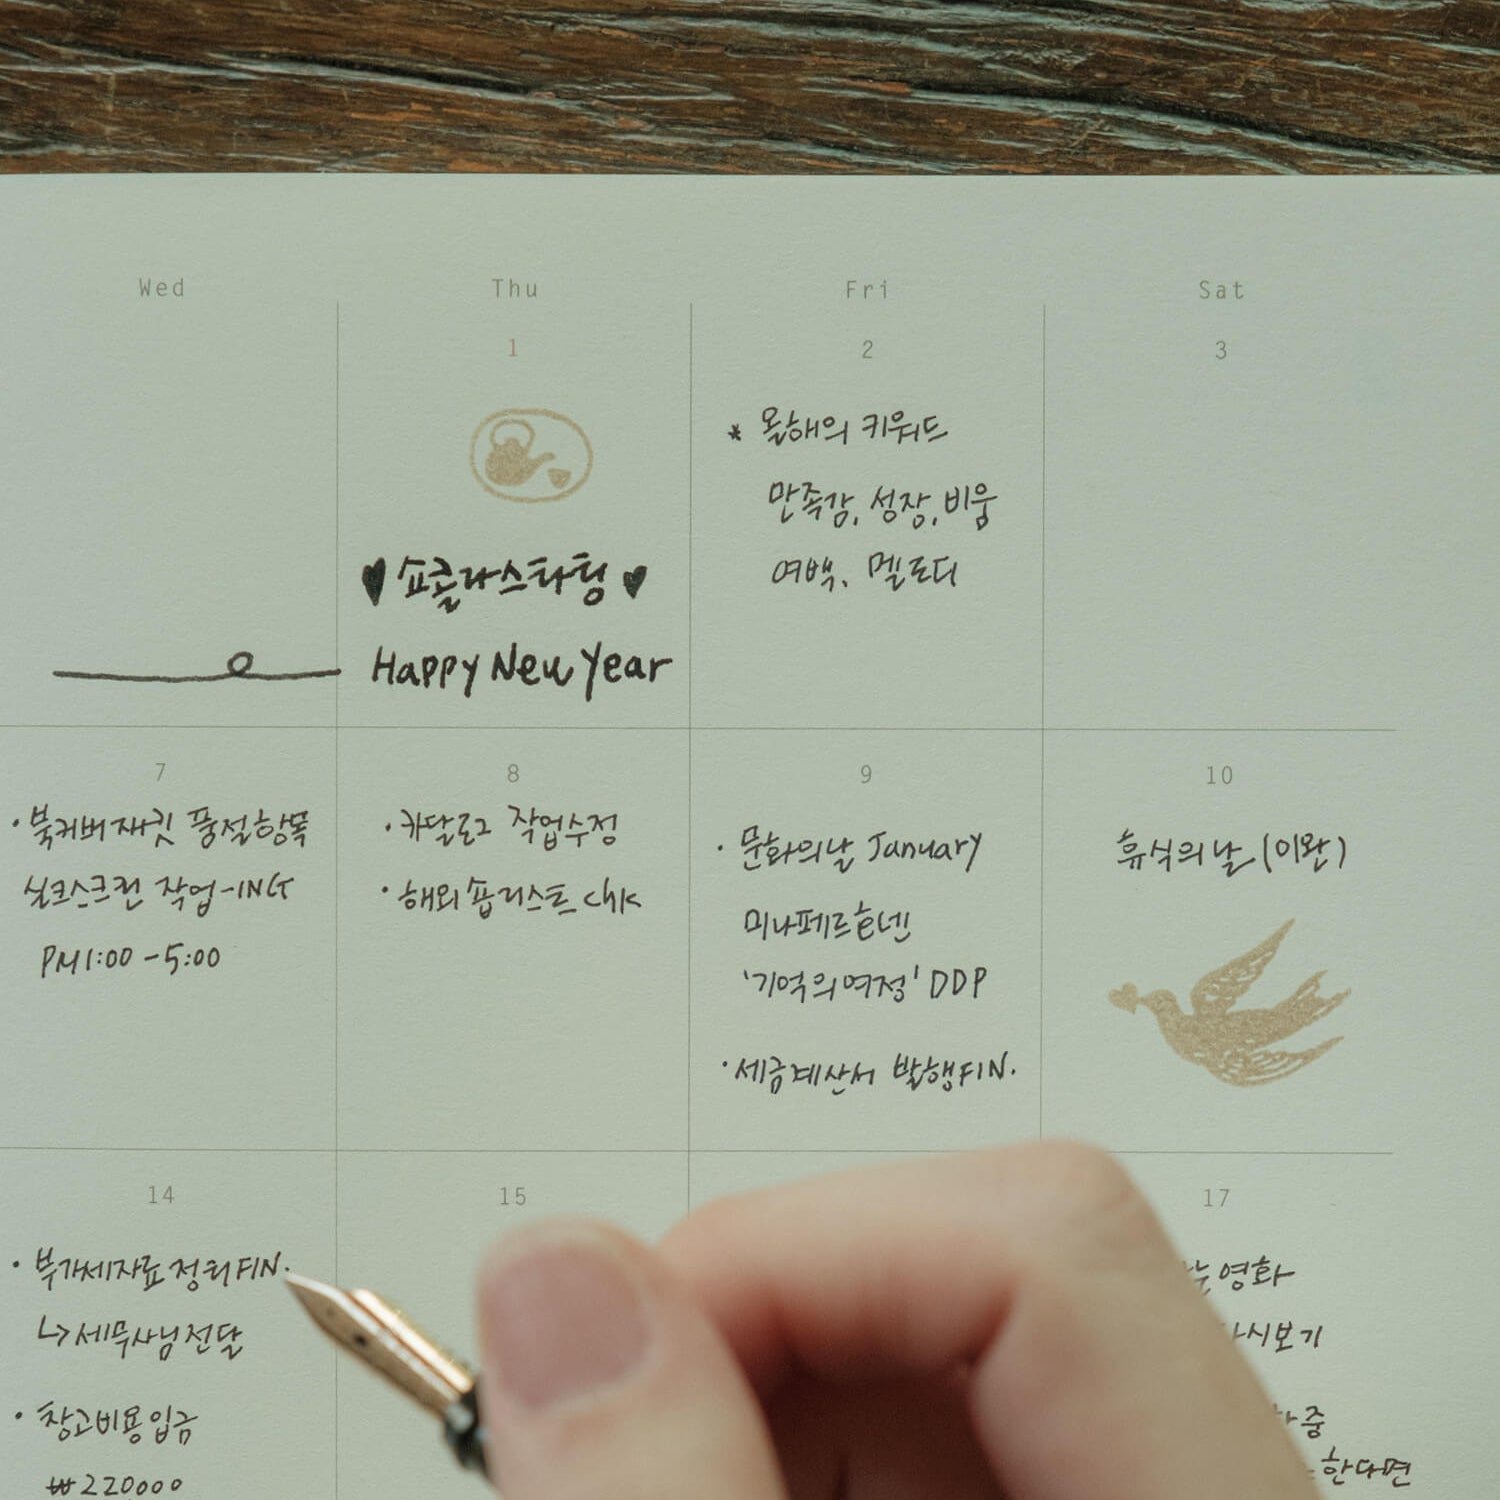 Wed Thu Fri Sat
1 2 3
♥ 쇼콜라스타팅 ♥
Happy New Year
* 올해의 키워드
만족감, 성장, 비움
여백, 멜로디
7 8 9 10
· 북커버재킷 품절항목
실크스크린 작업-ING
PM 1:00 - 5:00
· 카달로그 작업수정
· 해외숍리스트 chk
· 문화의날 January
미나페르호넨
'기억의여정' DDP
· 세금계산서 발행FIN.
휴식의날 (이완)
14 15 17
· 부가세자료정리FIN.
↳ 세무사님전달
· 창고비용입금
₩220000
영화
시보기
중
한다면